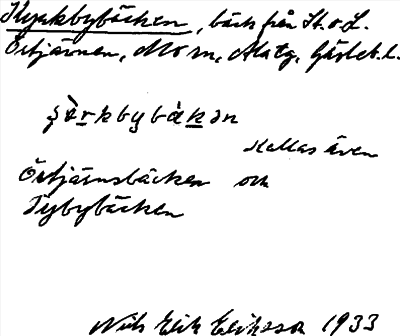 Kyrkbybäcken, bäck från St. o. L.
Örtjärnen, Mo sn, Matg, Gävleb. l.
şø̀rkbybàkən
Kallas även
Örtjärnsbäcken och
Tybybäcken
Nils Erik Eriksson 1933